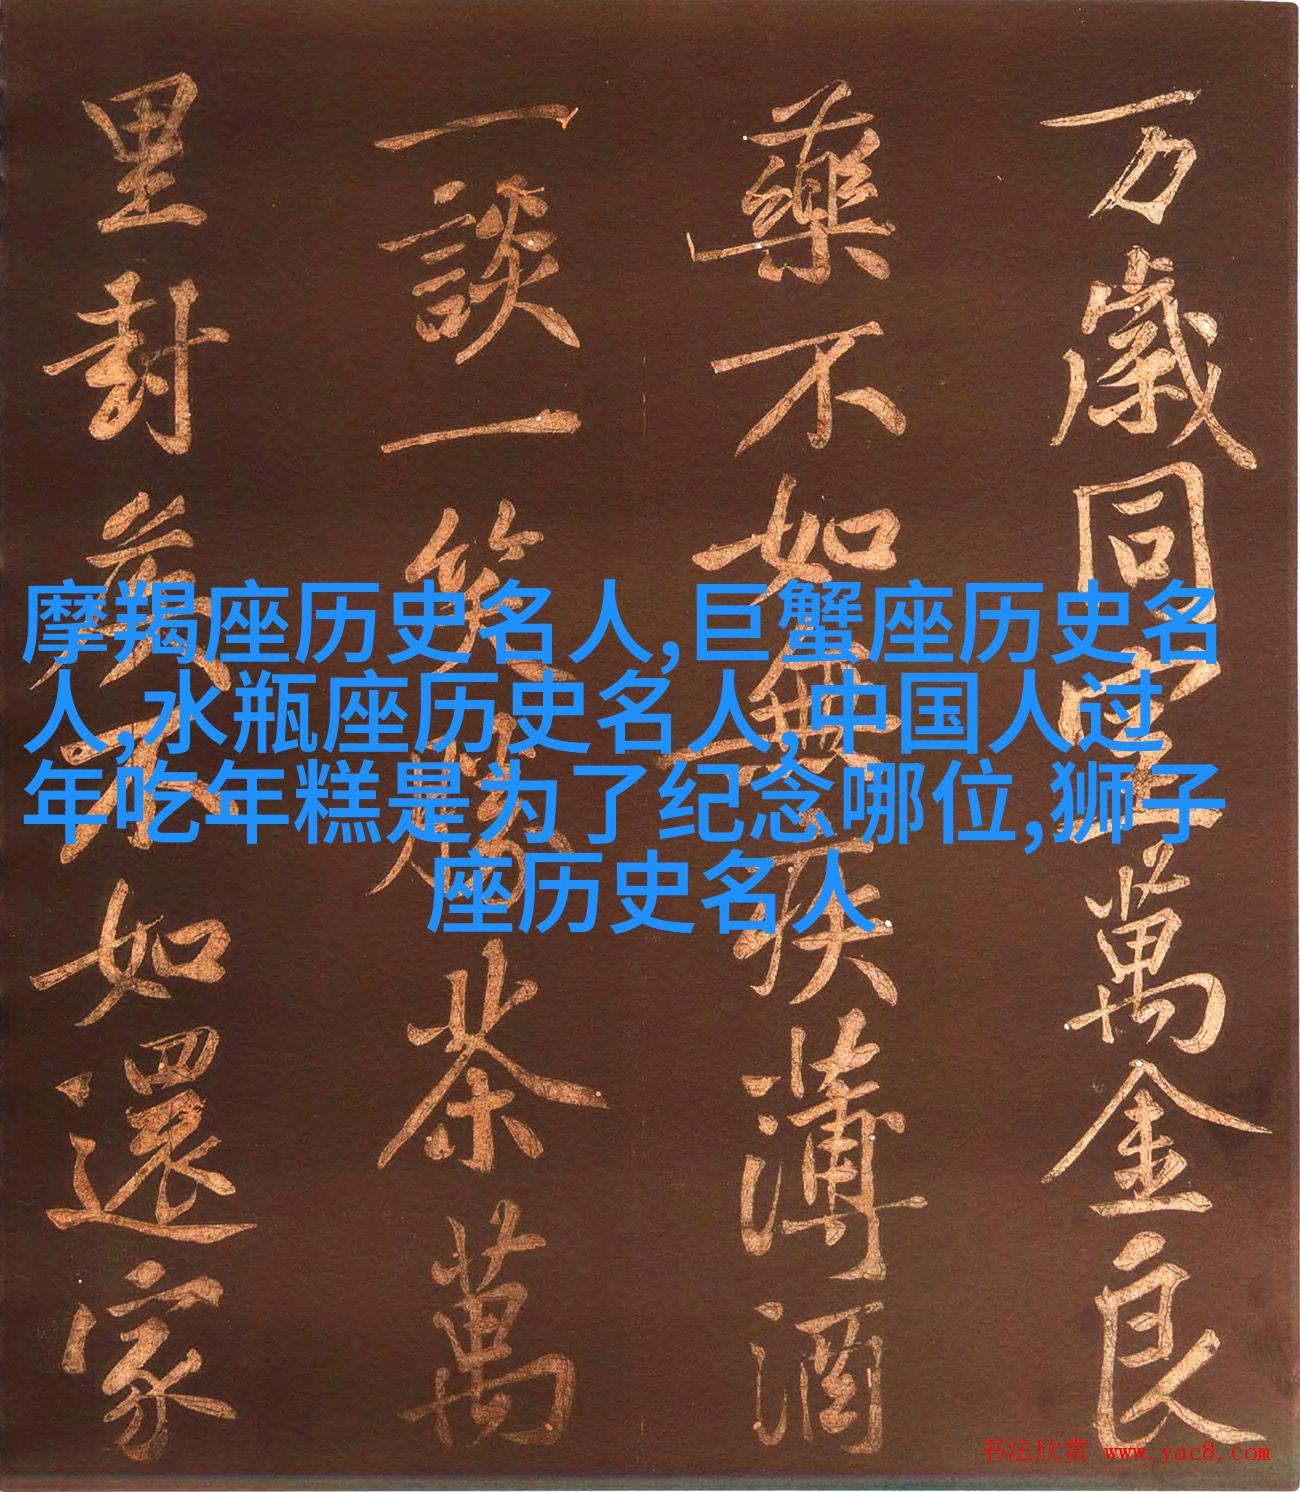 万歲同室萬金良
藥不如無疾薄酒
一談一笑勝茶萬
里封侯不如還家
摩羯座历史名人,巨蟹座历史名
人,水瓶座历史名人,中国人过
年吃年糕是为了纪念哪位,狮子
座历史名人
书法欣赏 www.yac8.com